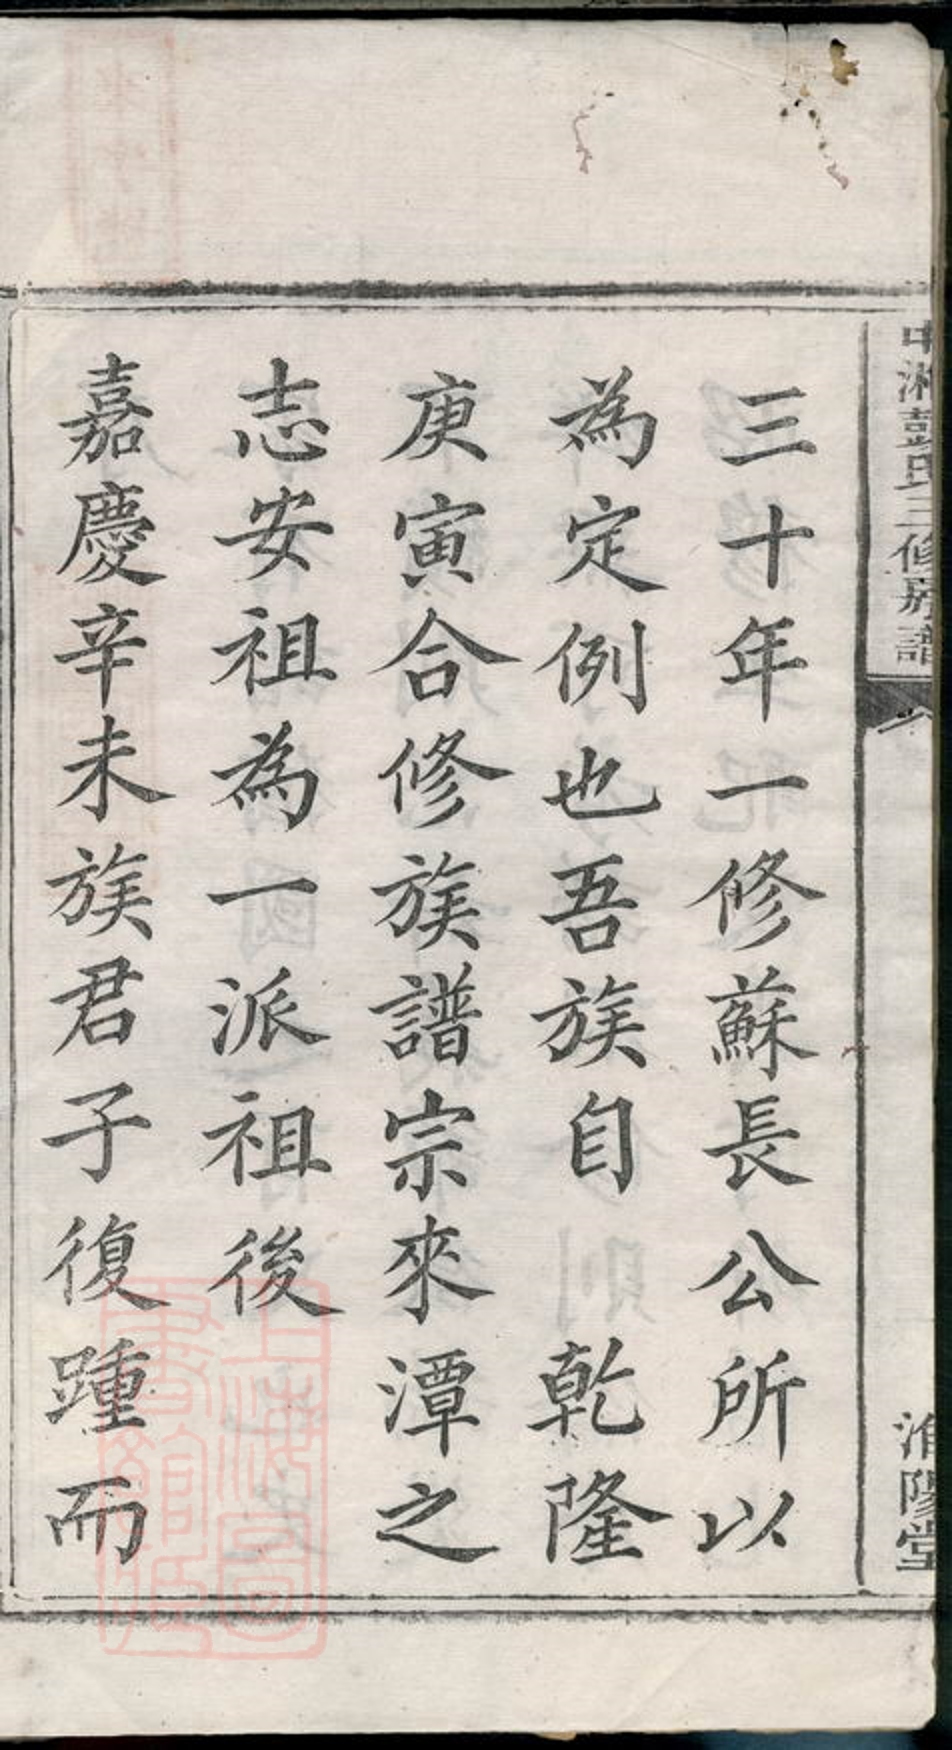 中湘彭氏三修房譜
淮陽堂
三十年一修蘇長公所以
為定例也吾族自 乾隆
庚寅合修族譜宗來潭之
志安祖為一派祖後
嘉慶辛未族君子復踵而
上海圖書館藏